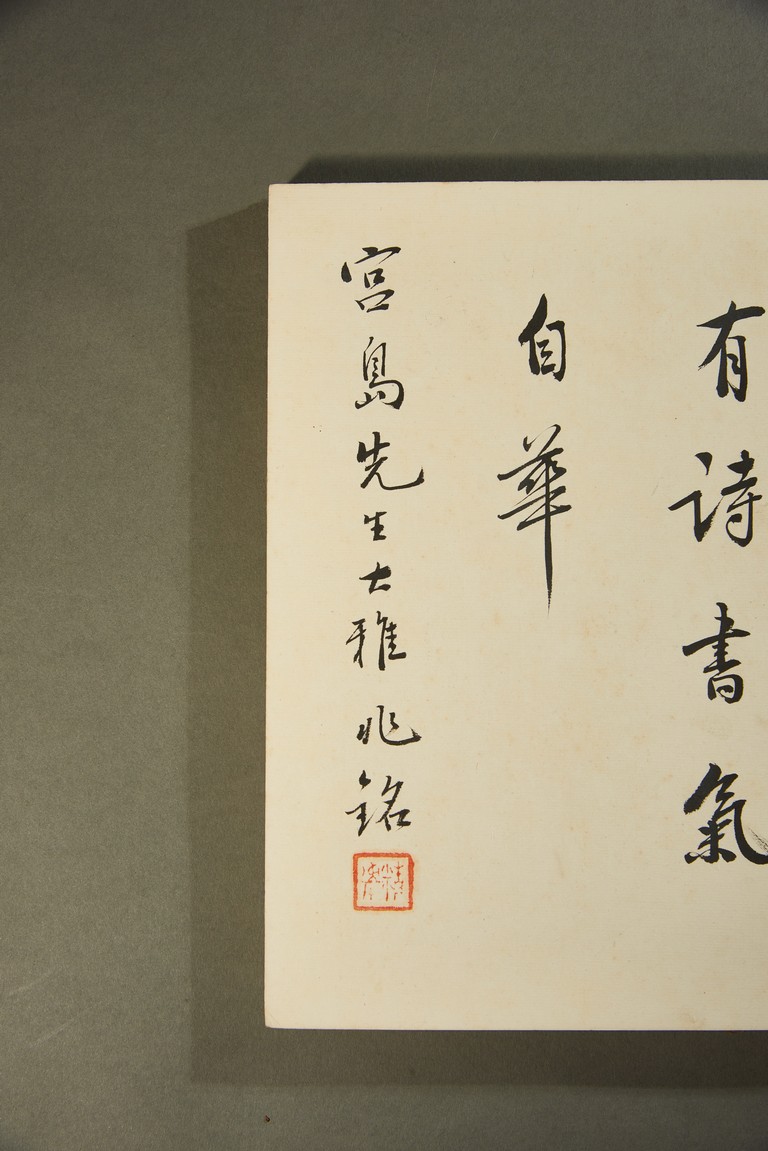 有詩書氣
自華
宮島先生大雅 兆銘